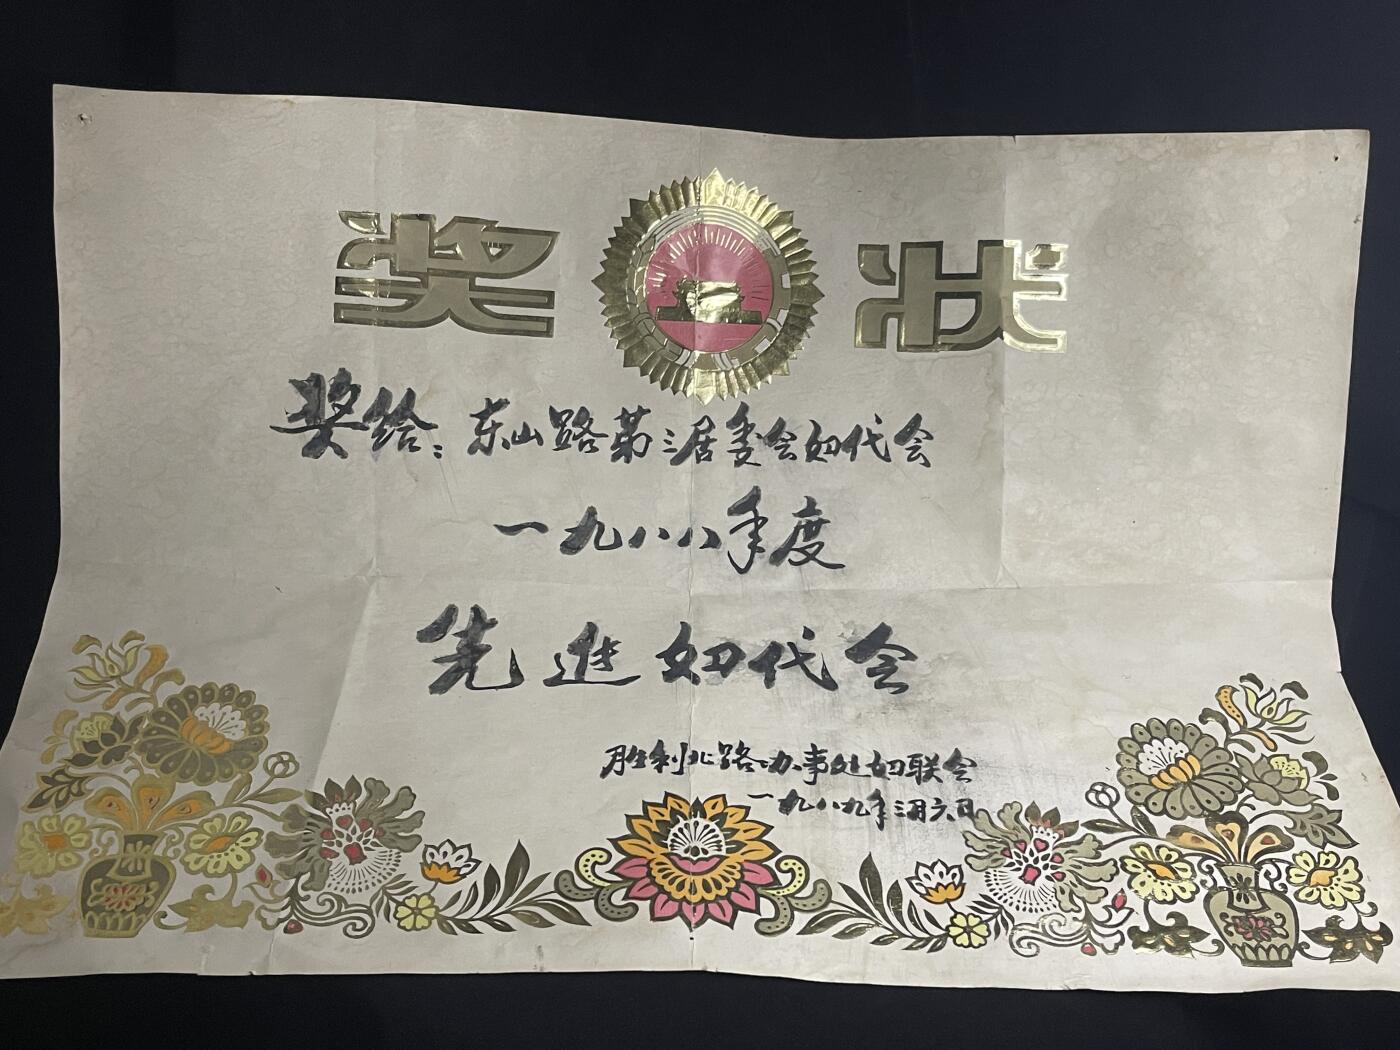 奖状
奖给：东山路第三居委会妇代会
一九八八年度
先进妇代会
胜利北路办事处妇联会
一九八九年三月六日